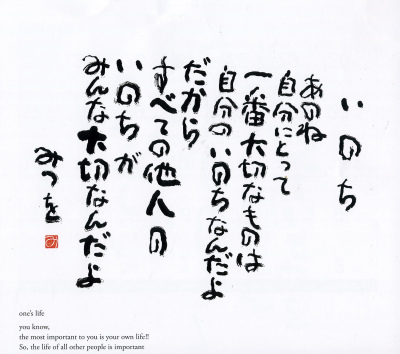 いのち
あのね
自分にとって
一番大切なものは
自分のいのちなんだよ
だから
すべての他人の
いのちが
みんな大切なんだよ
みつを
one's life
you know,
the most important to you is your own life!!
So, the life of all other people is important